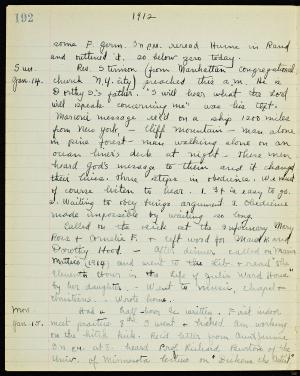 192 1912
some P. Germ. In p.m. reread Hume in Rand
and outlined it. 20 below zero today.
Sun. Rev. Stimson (from Manhattan Congregational
Jan. 14. church N.Y. city) preached this a.m. He is
Dorothy S's father. "I will hear what the Lord
will speak concerning me" was his text.
Marconi message rec'd on a ship 1200 miles
from New York, - Cliff Mountain - man alone
in pine forest - man walking alone on an
ocean liner's deck at night - These men
heard God's message to them and it changed
their lives. Three steps in obedience. We must
of course listen to hear. 1. It is easy to go.
2. Waiting to obey brings argument 3. Obedience
made impossible by waiting so long.
Called on the sick at the Infirmary Mary
Rose & Cornelia F. & left word for Maud and
Dorothy Hood. After dinner called on Mamie
(1914) and went to the Lib. & read "The
Eleventh Hour in the Life of Julia Ward Howe"
by her daughter. Went to music, chapel &
Wrote home.
Mon. Had a half hour Ec. written. First indoor
Jan. 15. meet practice
on the
In p.m. at 5. heard Prof. Richard Burton of the
Univ. of Minnesota lecture on "Dickens the Artist"